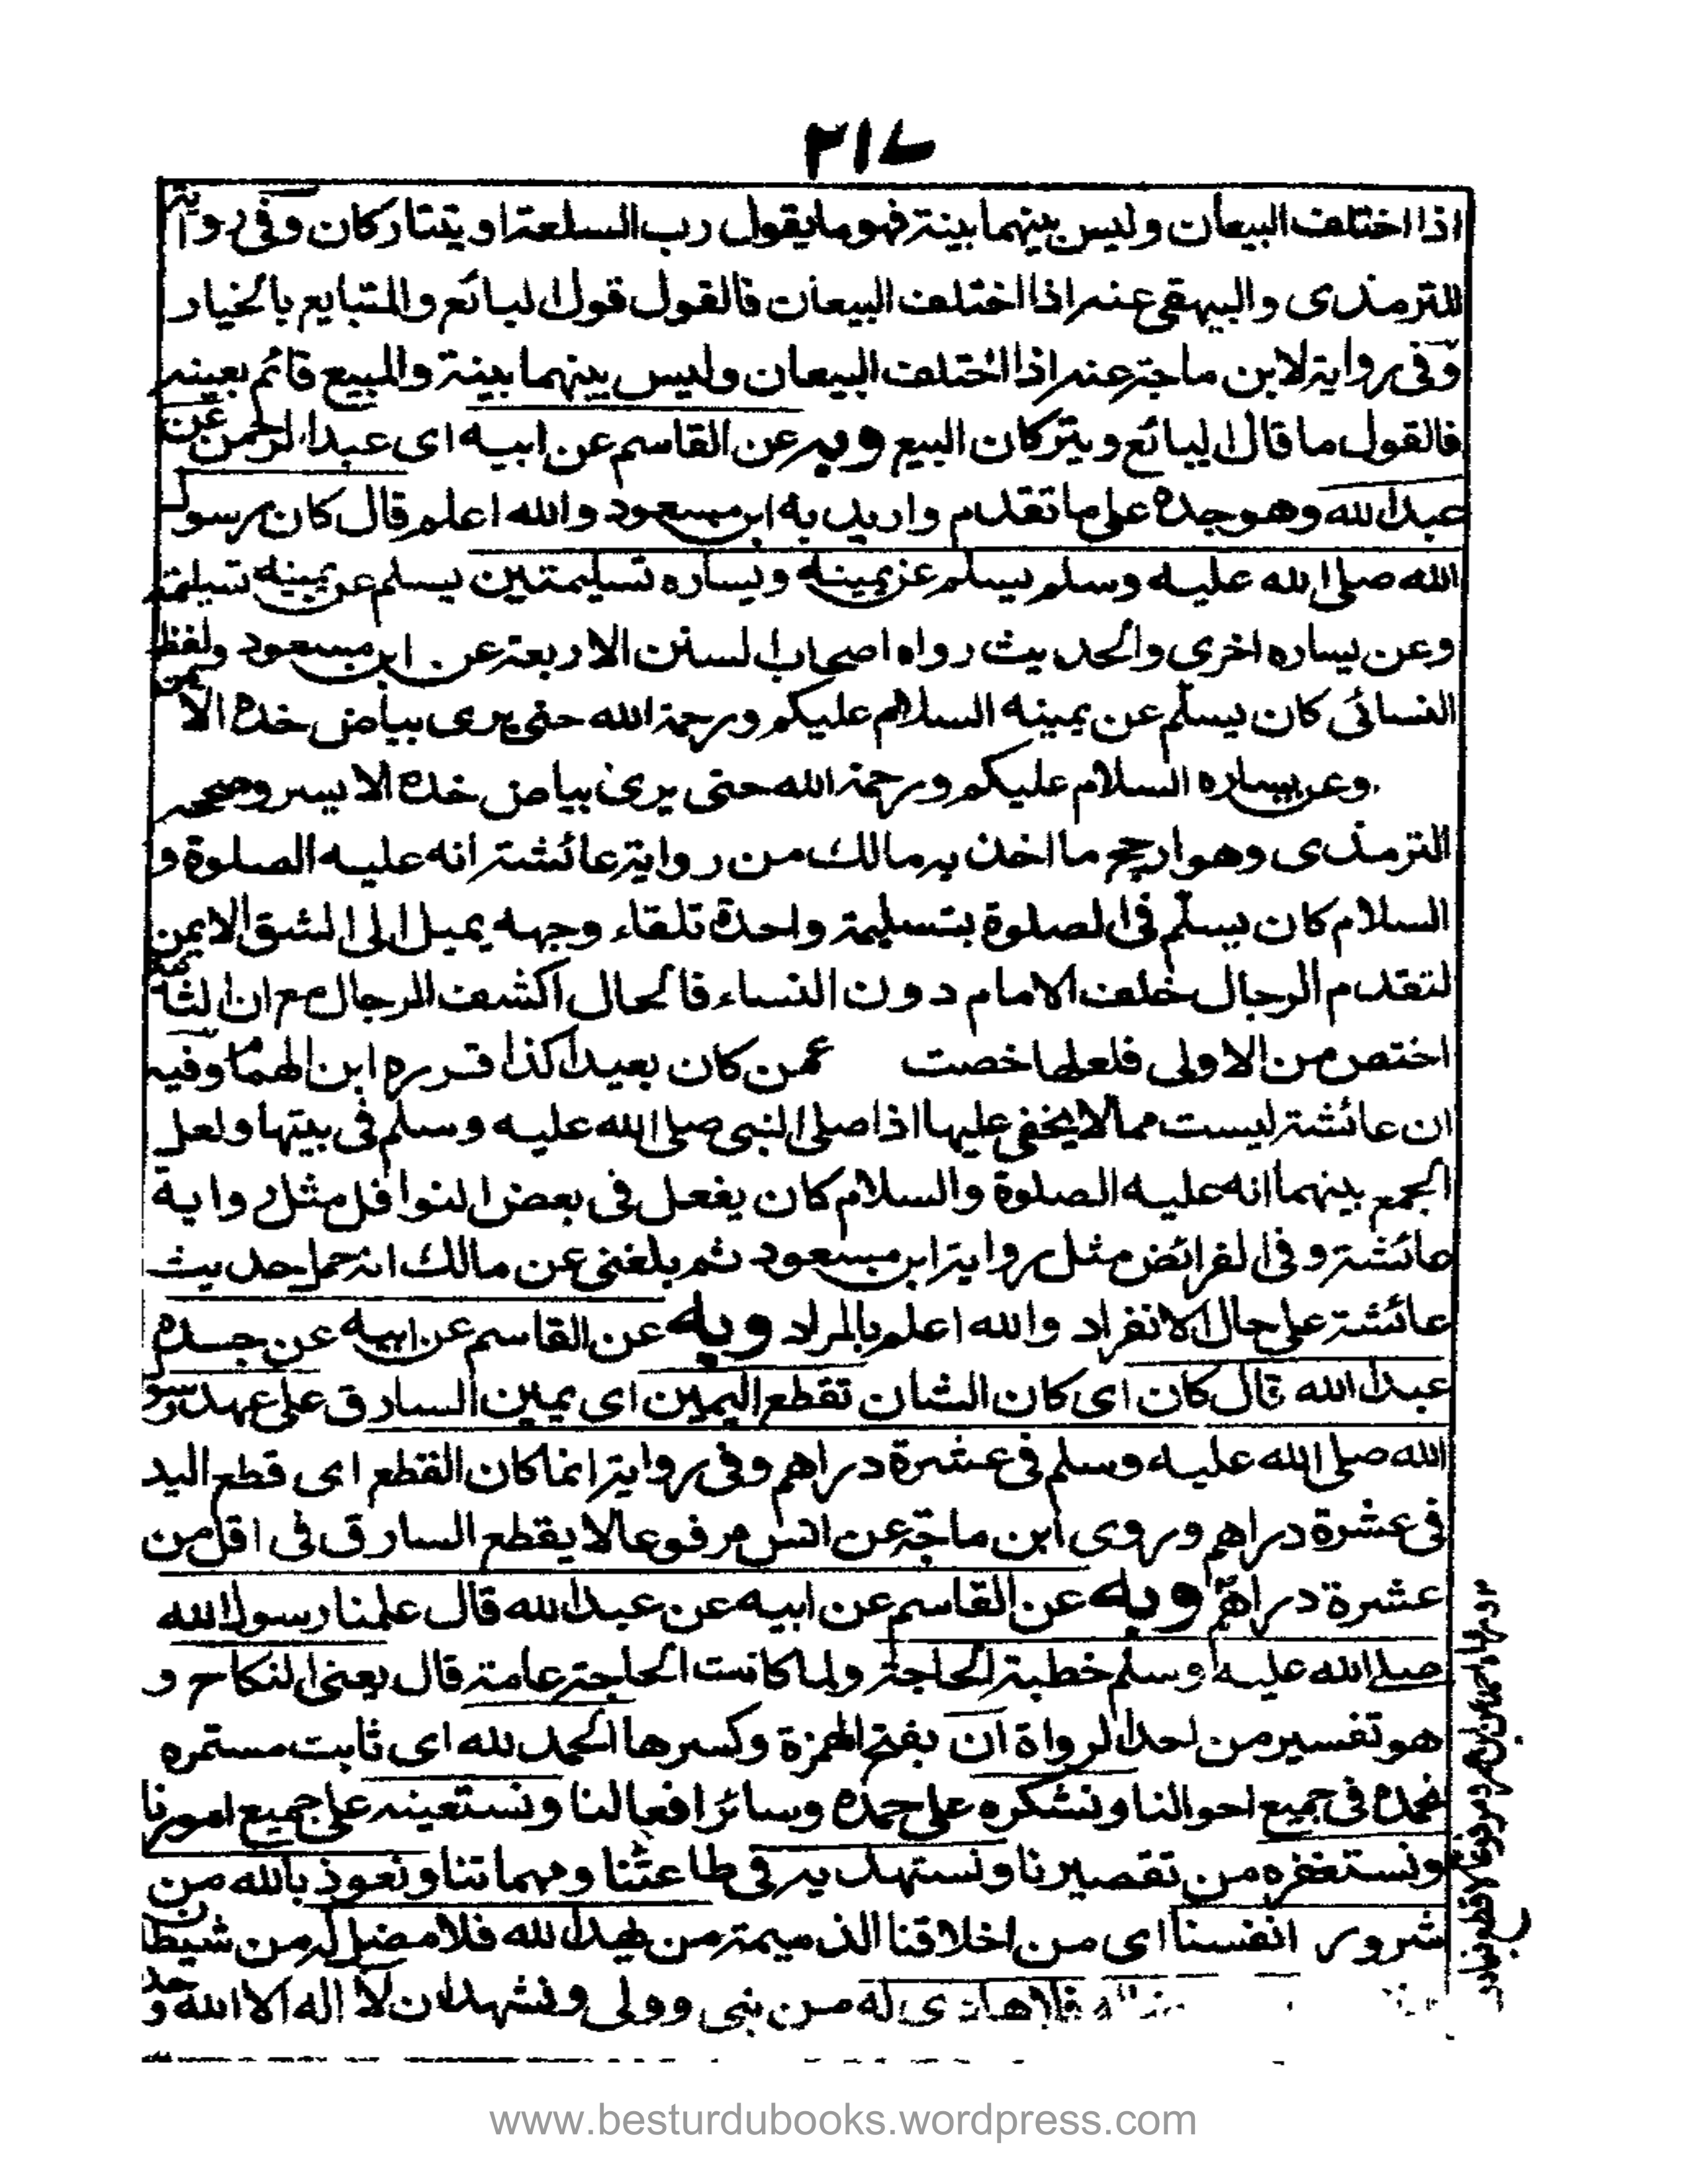 ٢١٧
اذا اختلف البيعان وليس بينهما بينة فهو ما يقول رب السلعة او يتتاركان وفى رواية
للترمذى والبيهقى عنه اذا اختلف البيعان فالقول قول البائع والمتبايع بالخيار
وفى رواية لابن ماجة عنه اذا اختلف البيعان وليس بينهما بينة والمبيع قائم بعينه
فالقول ما قال البائع ويتركان البيع وبه عن القاسم عن ابيه اى عبد الرحمن عن
عبد الله وهو جده على ما تقدم واريد به ابن مسعود والله اعلم قال كان رسول
الله صلى الله عليه وسلم يسلم عن يمينه ويساره تسليمتين يسلم عن يمينه تسليمة
وعن يساره اخرى والحديث رواه اصحاب السنن الاربعة عن ابن مسعود ولفظ
النسائى كان يسلم عن يمينه السلام عليكم ورحمة الله حتى يرى بياض خده الايمن
وعن يساره السلام عليكم ورحمة الله حتى يرى بياض خده الايسر وصححه
الترمذى وهو ارجح ما اخذ به مالك من رواية عائشة انه عليه الصلوة و
السلام كان يسلم فى الصلوة بتسليمة واحدة تلقاء وجهه يميل الى الشق الايمن
لتقدم الرجال خلف الامام دون النساء فالحال اكشف للرجال مع ان الثانية
اختص من الاولى فلعلها خصت عمن كان بعيدا كذا قرره ابن الهمام وفيه
ان عائشة ليست مما لا يخفى عليها اذا صلى النبى صلى الله عليه وسلم فى بيتها ولعل
الجمع بينهما انه عليه الصلوة والسلام كان يفعل فى بعض النوافل مثل رواية
عائشة وفى الفرائض مثل رواية ابن مسعود ثم بلغنى عن مالك انه حمل حديث
عائشة على حال الانفراد والله اعلم بالمراد وبه عن القاسم عن ابيه عن جده
عبد الله قال كان اى كان الشان تقطع اليمين اى يمين السارق على عهد رسول
الله صلى الله عليه وسلم فى عشرة دراهم وفى رواية انما كان القطع اى قطع اليد
فى عشرة دراهم وروى ابن ماجة عن انس مرفوعا لا يقطع السارق فى اقل من
عشرة دراهم وبه عن القاسم عن ابيه عن عبد الله قال علمنا رسول الله
صلى الله عليه وسلم خطبة الحاجة ولما كانت الحاجة عامة قال يعنى النكاح و
هو تفسير من احد الرواة ان بفتح الهمزة وكسرها الحمد لله اى ثابت مستمره
نحمده فى جميع احوالنا ونشكره على حمده وسائر افعالنا ونستعينه على جميع امورنا
ونستغفره من تقصيرنا ونستهديه فى طاعتنا ومهماتنا ونعوذ بالله من
شرور انفسنا اى من اخلاقنا الذميمة من يهد الله فلا مضل له من شيطان
فلا هادى له من نبى وولى ونشهد ان لا اله الا الله وحد
www.besturdubooks.wordpress.com